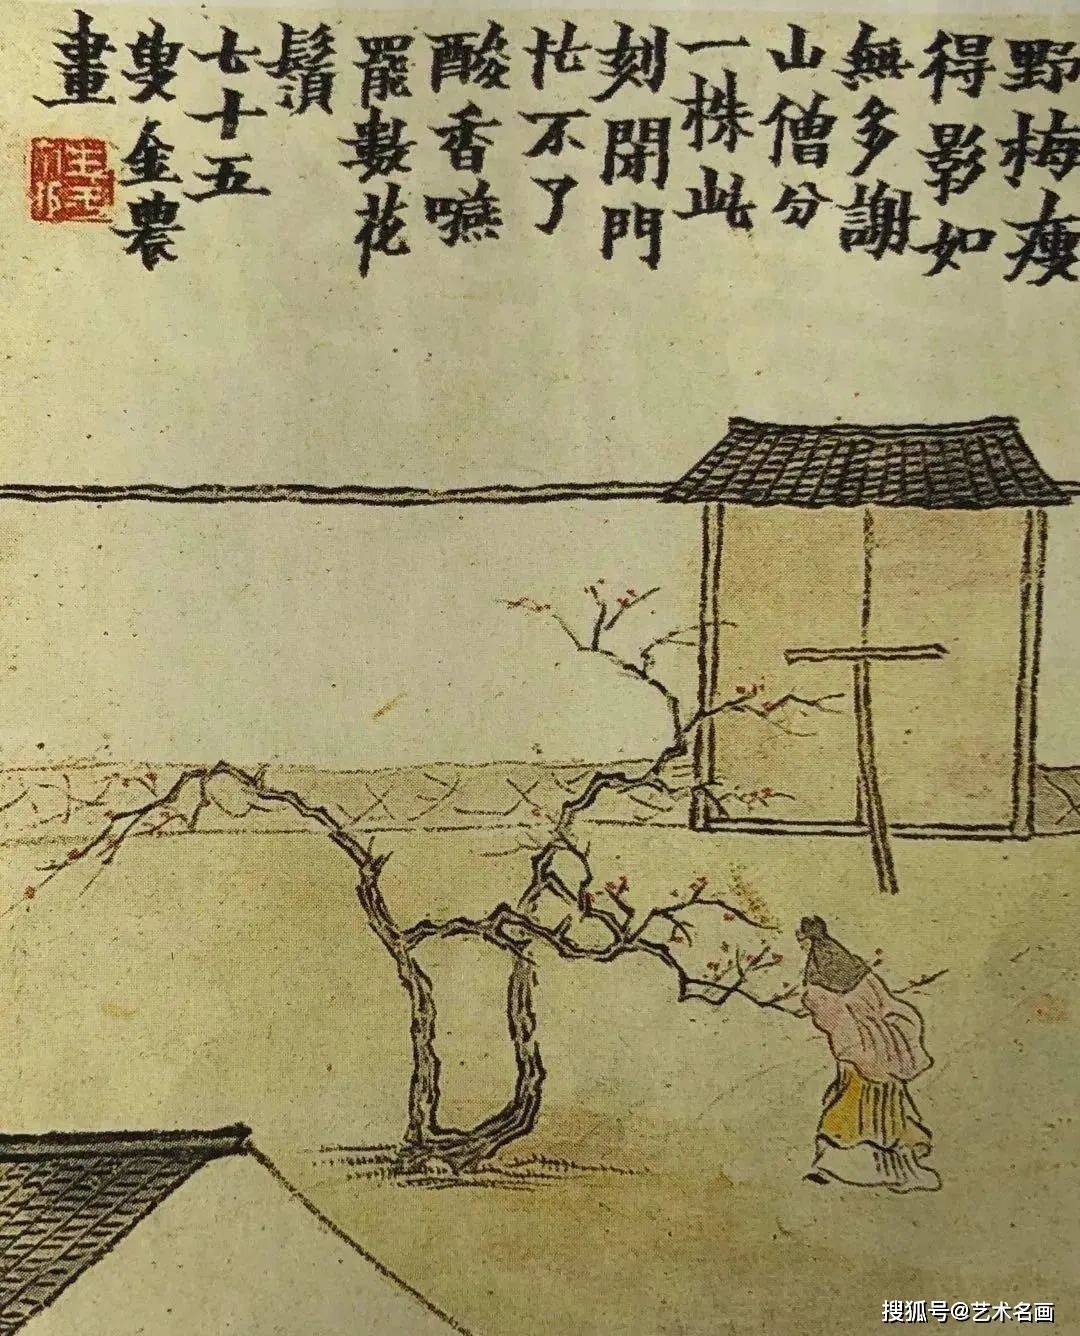 野梅瘦
得影如
無多謝
山僧分
一株此
刻閉門
忙不了
酸香嚥
罷數花
鬚
七十五
叟金農
畫
搜狐号@艺术名画